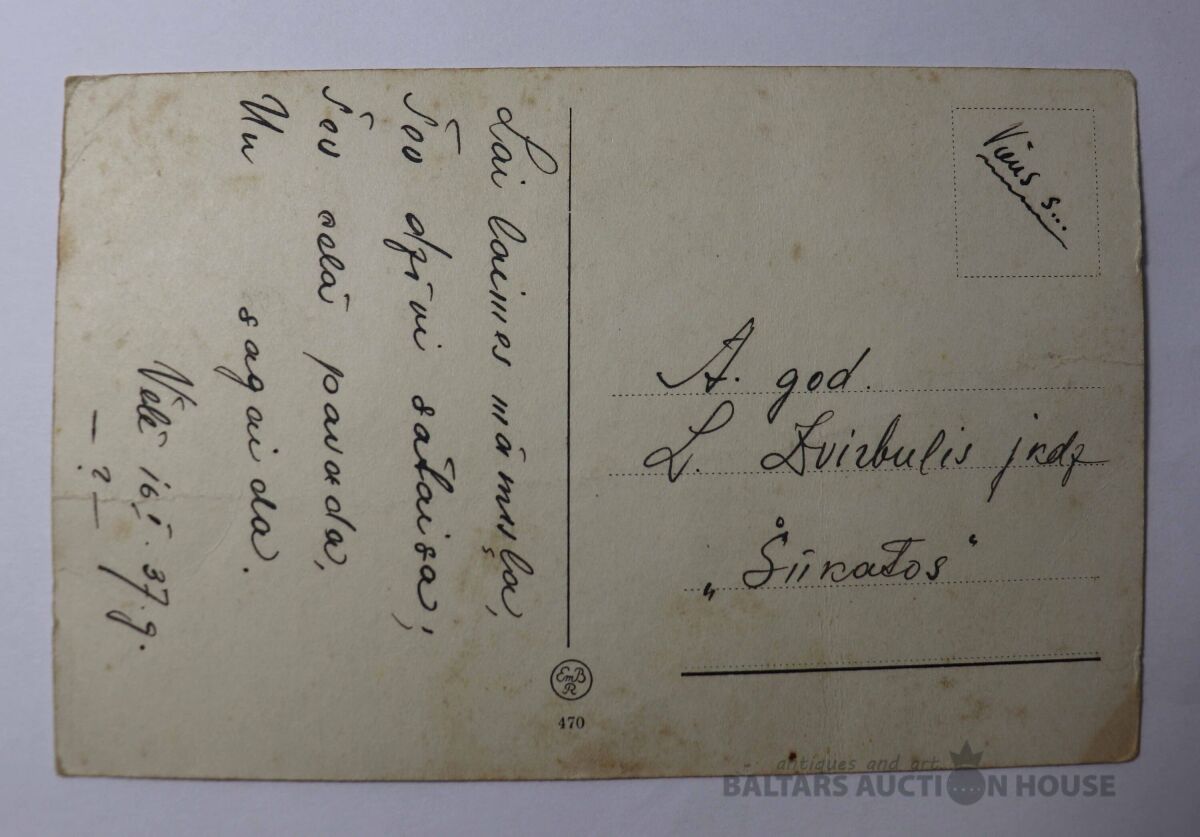 Lai laimes māmiņa,
Tev dzīvi sataisa;
Tev ceļā pavada,
Un sagaida.
Vēlē 16.I.37.g.
— ? —
Viens s...
A. god.
L. Zvirbulis jkdz
„Šūkatos"
EmB
R
470
antiques and art
BALTARS AUCTION HOUSE